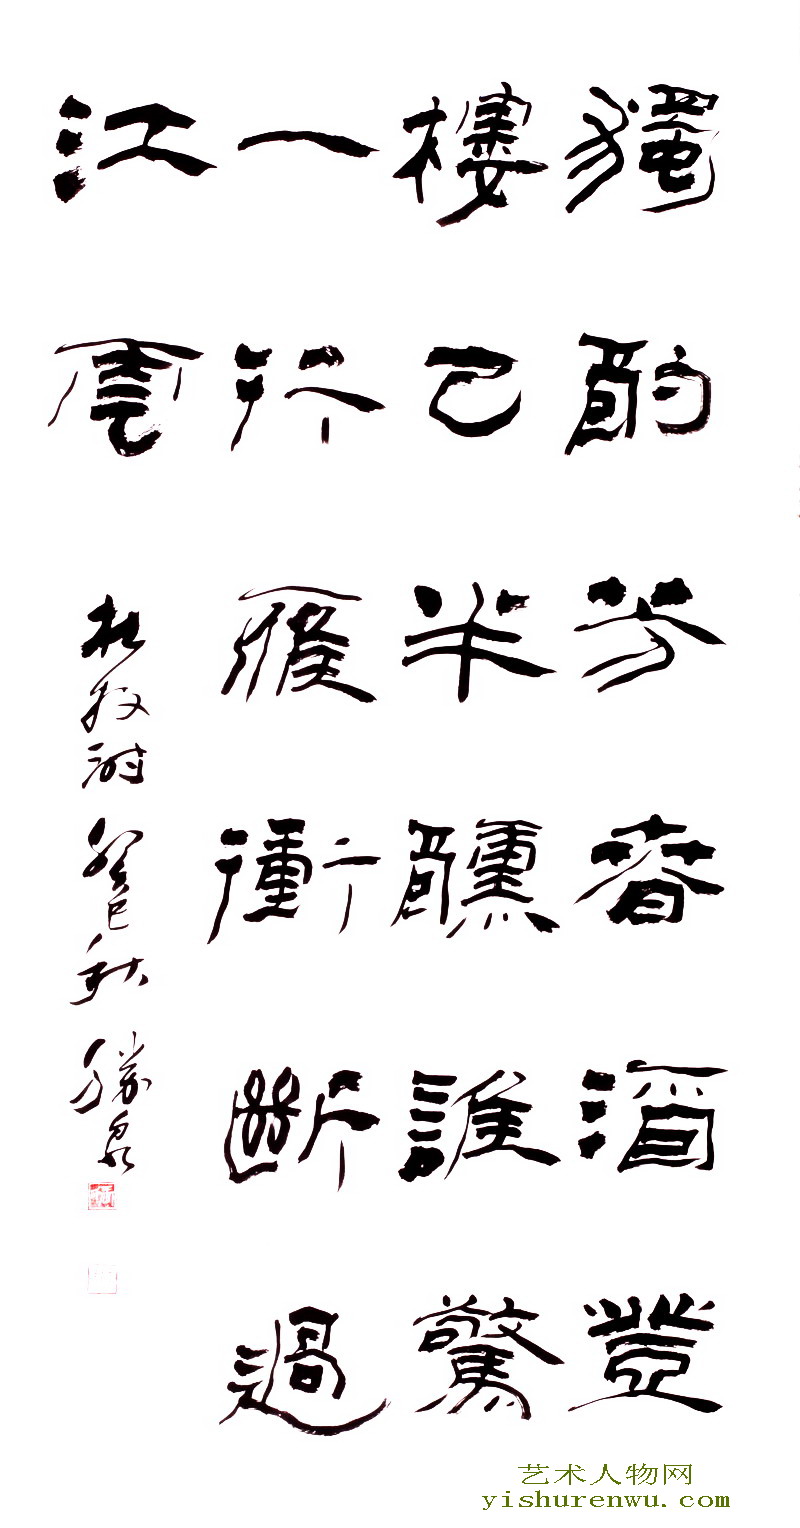 獨酌芳香酒登
樓已半醺誰驚
一行雁衝斷過
江雲
杜牧詩癸巳秋勝泉
艺术人物网
yishurenwu.com